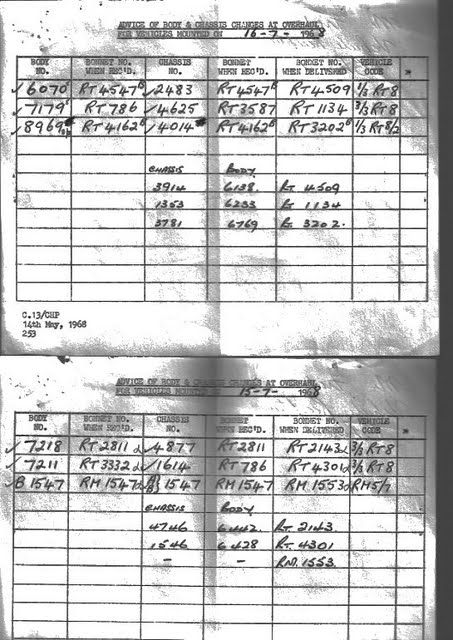 ADVICE OF BODY & CHASSIS CHANGES AT OVERHAUL
FOR VEHICLES MOUNTED ON 16-7- 1968
BODY NO. BONNET NO. WHEN REC'D. CHASSIS NO. BONNET WHEN REC'D. BONNET NO. WHEN DELIVERED VEHICLE CODE
✓6070 RT4547 ✓2483 RT4547 RT4509 1/3 RT8
✓7179 RT786 ✓4625 RT3587 RT1134 3/3 RT8
✓8969 RT4162 ✓4014 RT4162 RT3202 1/3 RT8/2
CHASSIS BODY
3914 6138. Rt 4509
1353 6233 Rt 1134
3781 6769 Rt 3202.
C.13/CHP
14th May, 1968
253
ADVICE OF BODY & CHASSIS CHANGES AT OVERHAUL
FOR VEHICLES MOUNTED 15-7- 1968
BODY NO. BONNET NO. WHEN REC'D. CHASSIS NO. BONNET WHEN REC'D. BONNET NO. WHEN DELIVERED VEHICLE CODE
✓7218 RT2811 ✓4877 RT2811 RT2143 3/3 RT8
✓7211 RT3332 ✓1614 RT786 RT4301 3/3 RT8
✓B1547 RM1547 1547 RM1547 RM1553 RM5/7
CHASSIS BODY
4746 6442. Rt. 2143.
1546 6428 Rt. 4301
- - RM. 1553.